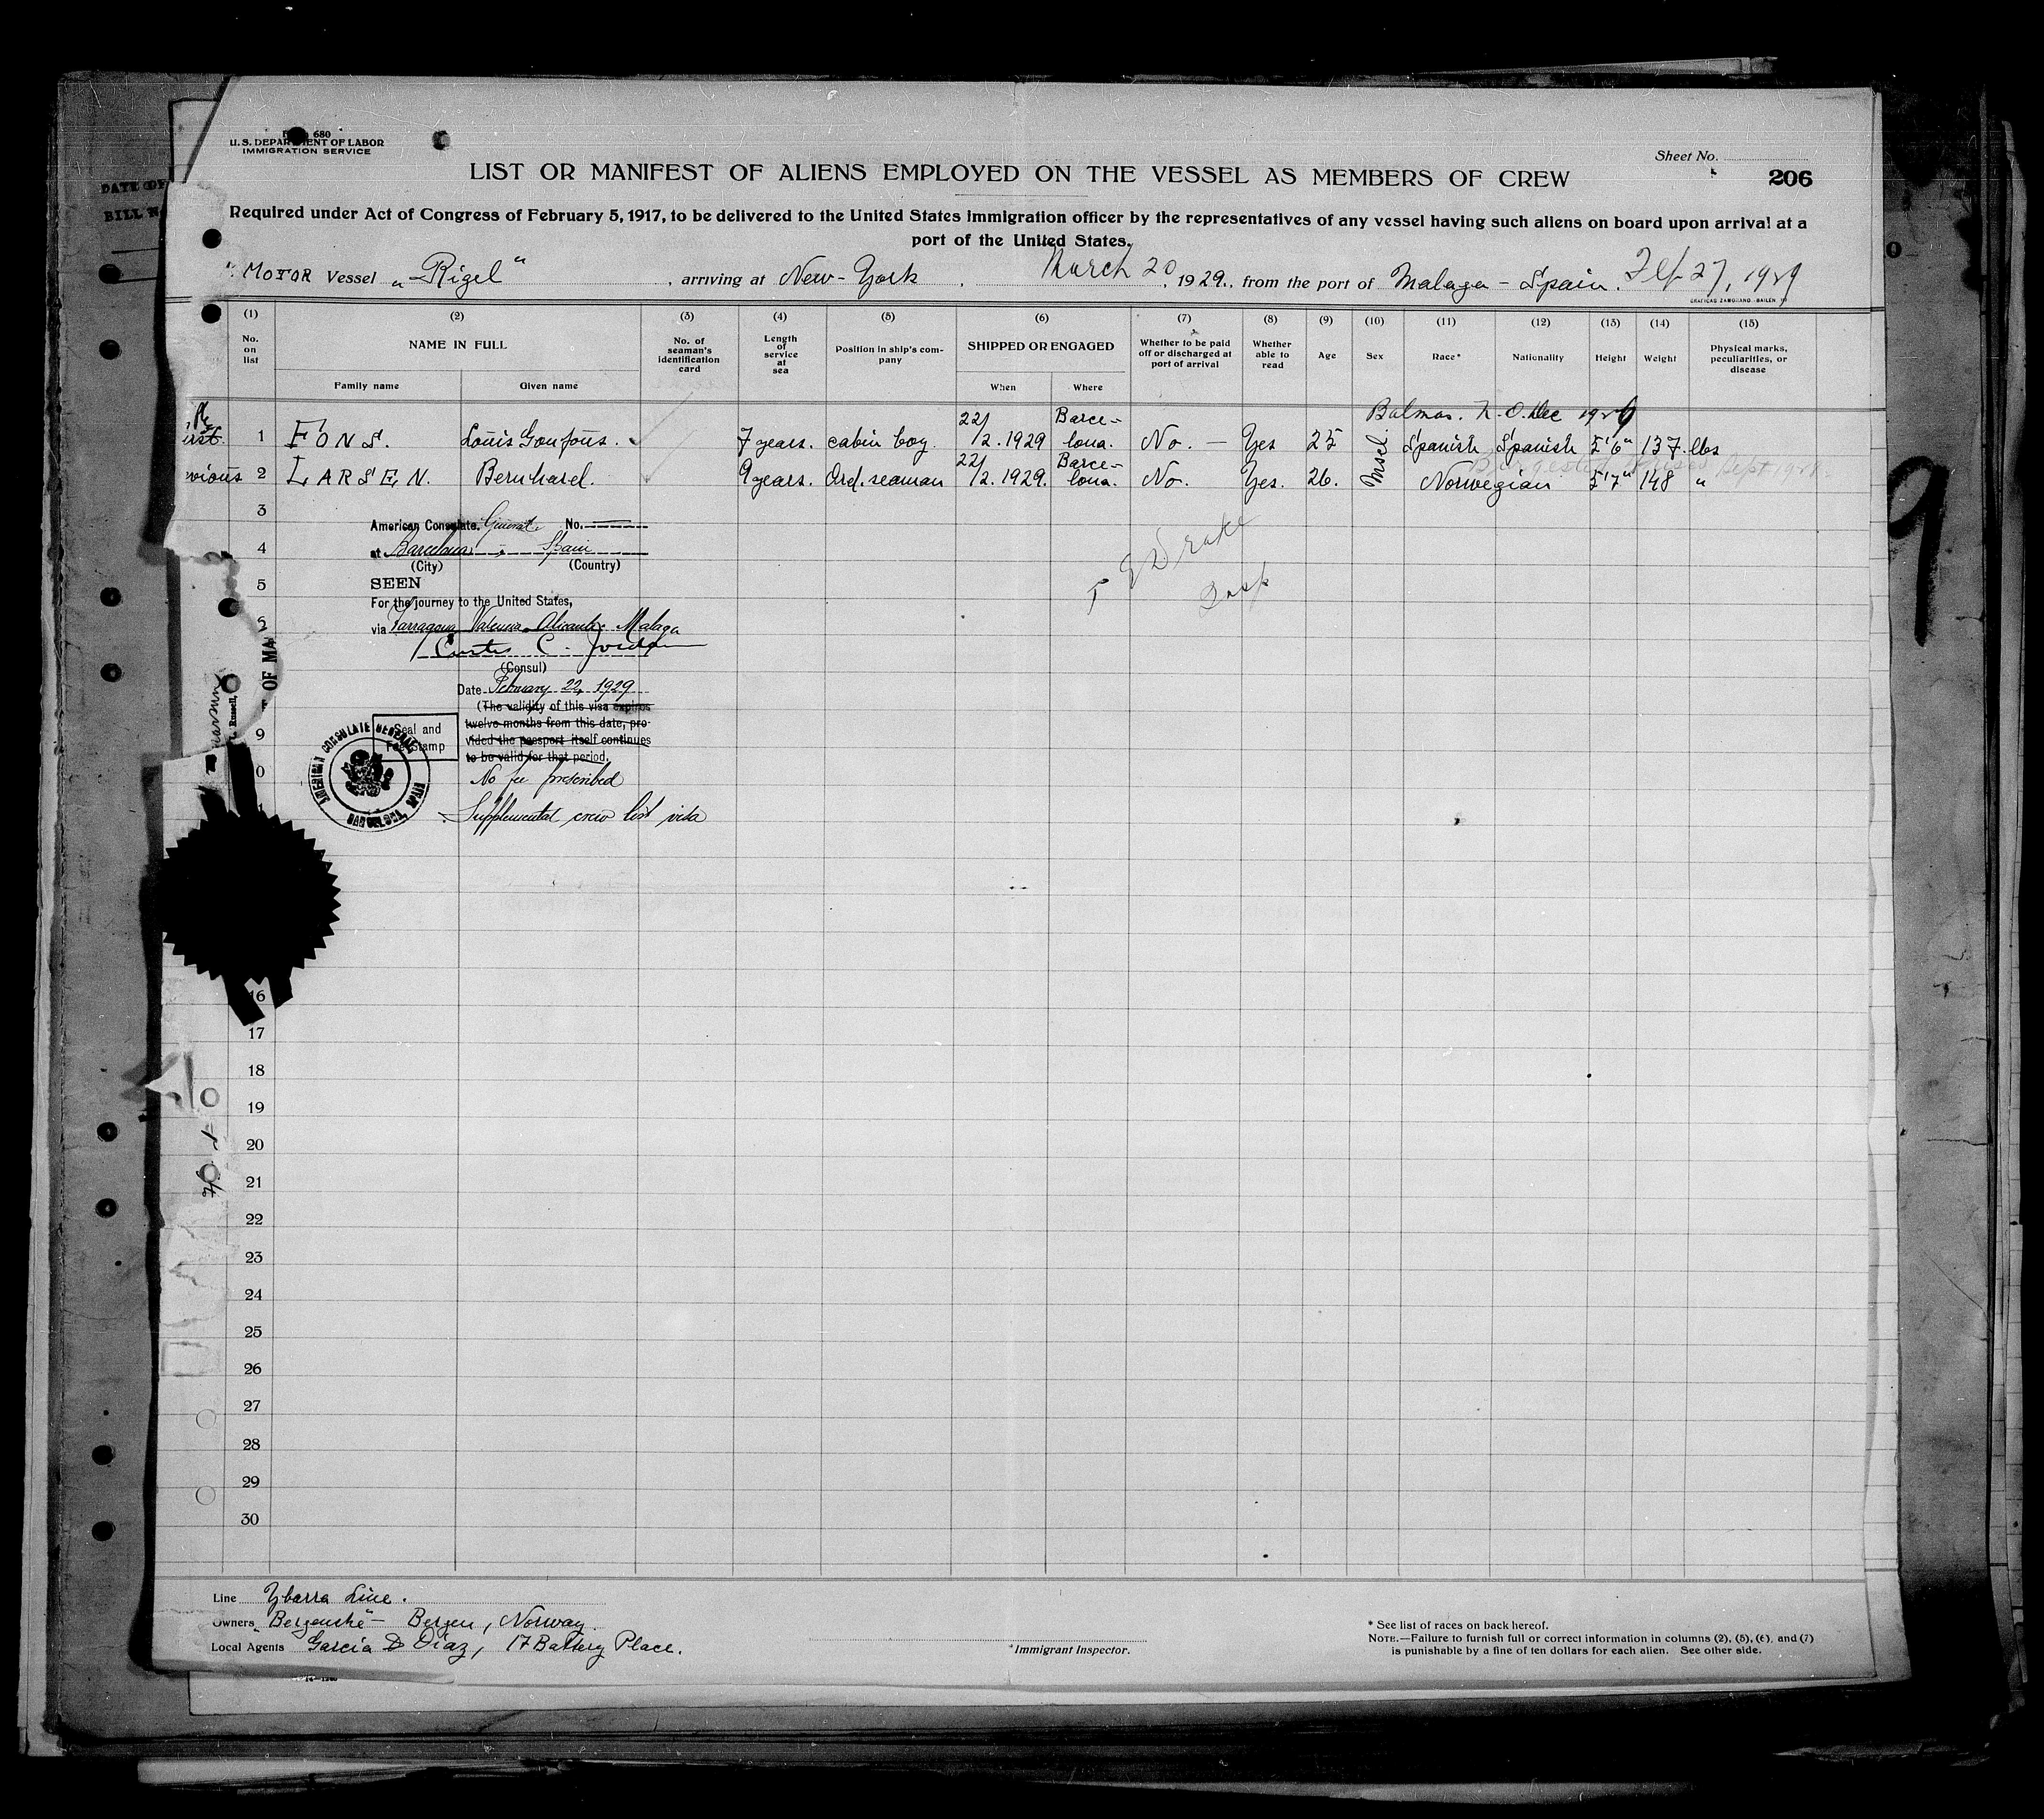 680
U.S. DEPARTMENT OF LABOR
IMMIGRATION SERVICE
Sheet No.
LIST OR MANIFEST OF ALIENS EMPLOYED ON THE VESSEL AS MEMBERS OF CREW
206
Required under Act of Congress of February 5, 1917, to be delivered to the United States immigration officer by the representatives of any vessel having such aliens on board upon arrival at a
port of the United States.
MOTOR Vessel "Rigel" , arriving at New-York March 20, 1929, from the port of Malaga - Spain. Feb 27, 1929
(1) (2) (3) (4) (5) (6) (7) (8) (9) (10) (11) (12) (13) (14) (15)
No. on list
NAME IN FULL
Family name
Given name
No. of seaman's identification card
Length of service at sea
Position in ship's company
SHIPPED OR ENGAGED
When
Where
Whether to be paid off or discharged at port of arrival
Whether able to read
Age
Sex
Race*
Nationality
Height
Weight
Physical marks, peculiarities, or disease
Dec
1 FONS. Louis 7 years. cabin boy 22/2.1929 Barce-lona. No. - Yes 25 Spanish Spanish 5'6" 137 lbs
2 LARSEN. Bernhard. 9 years. Ord. seaman 22/2.1929. Barce-lona. No. Yes. 26. Norwegian 5'7" 148 "
3
American Consulate General No.
4
at Barcelona Spain
(City) (Country)
5
SEEN
For the journey to the United States,
via Tarragona Valencia Alicante Malaga
Curtis C. Jordan
(Consul)
Date February 22, 1929
(The validity of this visa expires
twelve months from this date, pro-
vided the passport itself continues
to be valid for that period.
Seal and
Fee Stamp
AMERICAN CONSULATE GENERAL
BARCELONA, SPAIN
9
No fee prescribed
Supplemental crew list visa
OF MA
Russell,
16
17
18
19
20
21
22
23
24
25
26
27
28
29
30
Line Ybarra Line.
Owners "Bergenske" - Bergen, Norway.
Local Agents Garcia & Diaz, 17 Battery Place.
*Immigrant Inspector.
* See list of races on back hereof.
NOTE.—Failure to furnish full or correct information in columns (2), (5), (6), and (7)
is punishable by a fine of ten dollars for each alien. See other side.